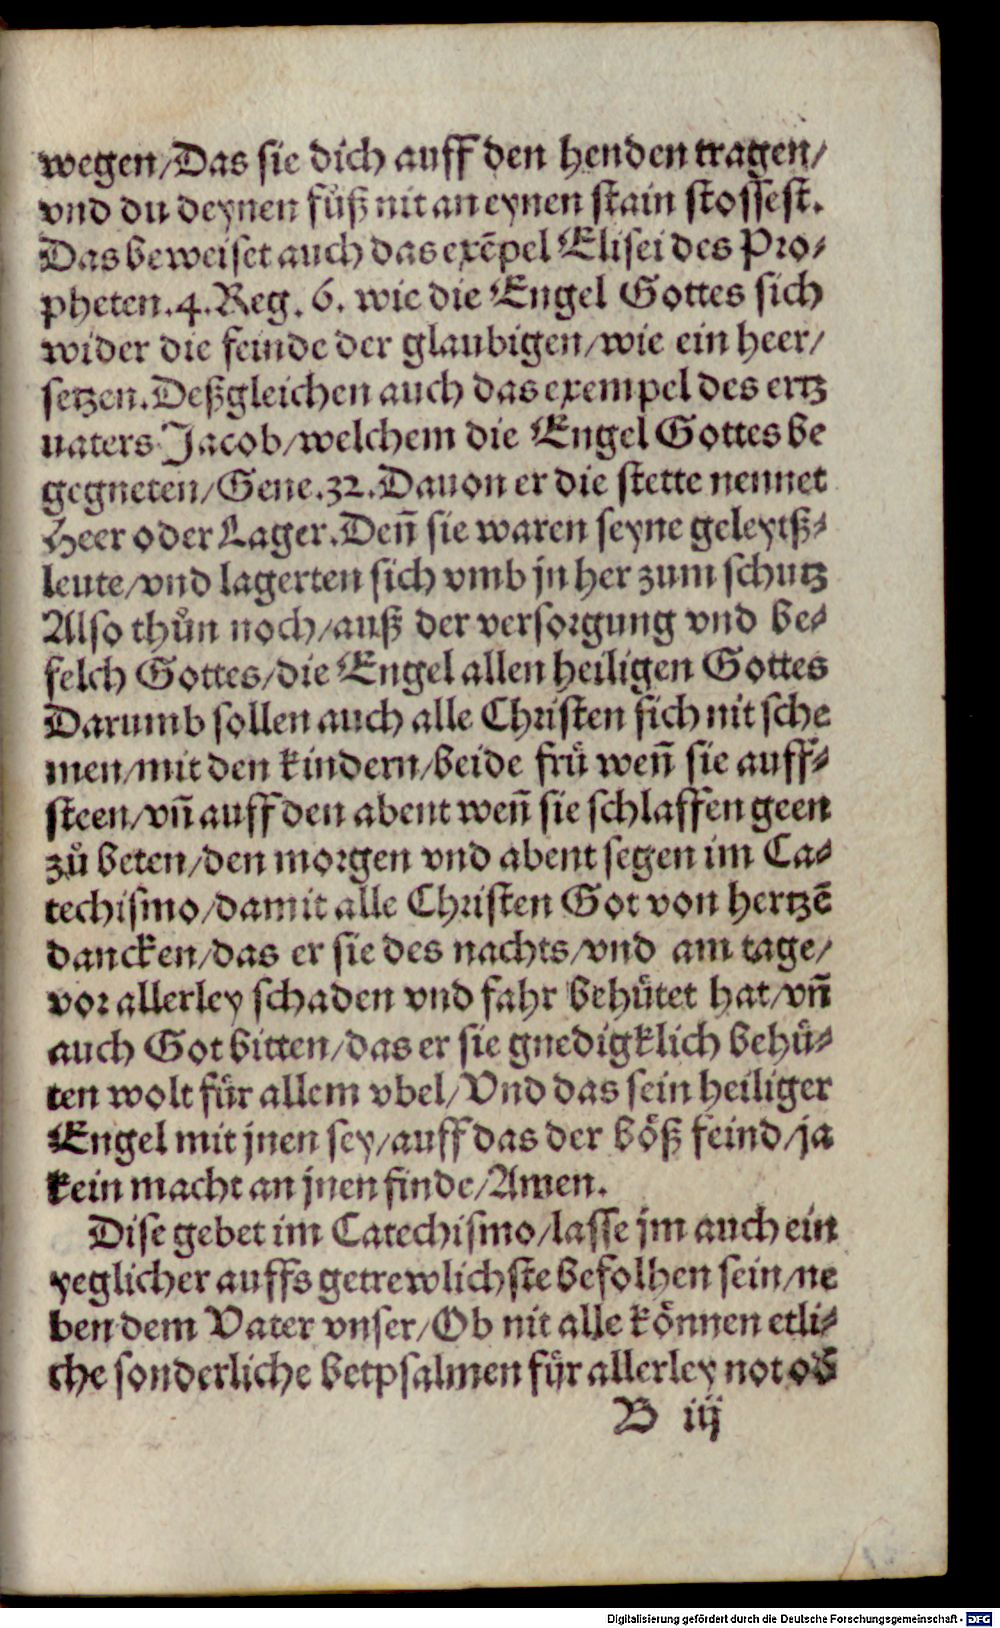 wegen/Das sie dich auff den henden tragen/
vnd du deynen fůß nit an eynen stain stossest.
Das beweiset auch das exẽpel Elisei des Pro-
pheten.4.Reg.6. wie die Engel Gottes sich
wider die feinde der glaubigen/wie ein heer/
setzen.Deßgleichen auch das exempel des ertz
uaters Jacob/welchem die Engel Gottes be
gegneten/Gene.32.Dauon er die stette nennet
Heer oder Lager.Deñ sie waren seyne geleytß-
leute/vnd lagerten sich vmb jn her zum schutz
Also thůn noch/auß der versorgung vnd be-
felch Gottes/die Engel allen heiligen Gottes
Darumb sollen auch alle Christen sich nit sche
men/mit den kindern/beide frů weñ sie auff-
steen/vñ auff den abent weñ sie schlaffen geen
zů beten/den morgen vnd abent segen im Ca-
techismo/damit alle Christen Got von hertzẽ
dancken/das er sie des nachts/vnd am tage/
vor allerley schaden vnd fahr behuͤtet hat/vñ
auch Got bitten/das er sie gnedigklich behuͤ-
ten wolt fuͤr allem vbel/Vnd das sein heiliger
Engel mit jnen sey/auff das der boͤß feind/ja
kein macht an jnen finde/Amen.
Dise gebet im Catechismo/lasse jm auch ein
yeglicher auffs getrewlichste befolhen sein/ne
ben dem Vater vnser/Ob nit alle koͤnnen etli-
che sonderliche betpsalmen fuͤr allerley not od̕
B iij
Digitalisierung gefördert durch die Deutsche Forschungsgemeinschaft - DFG